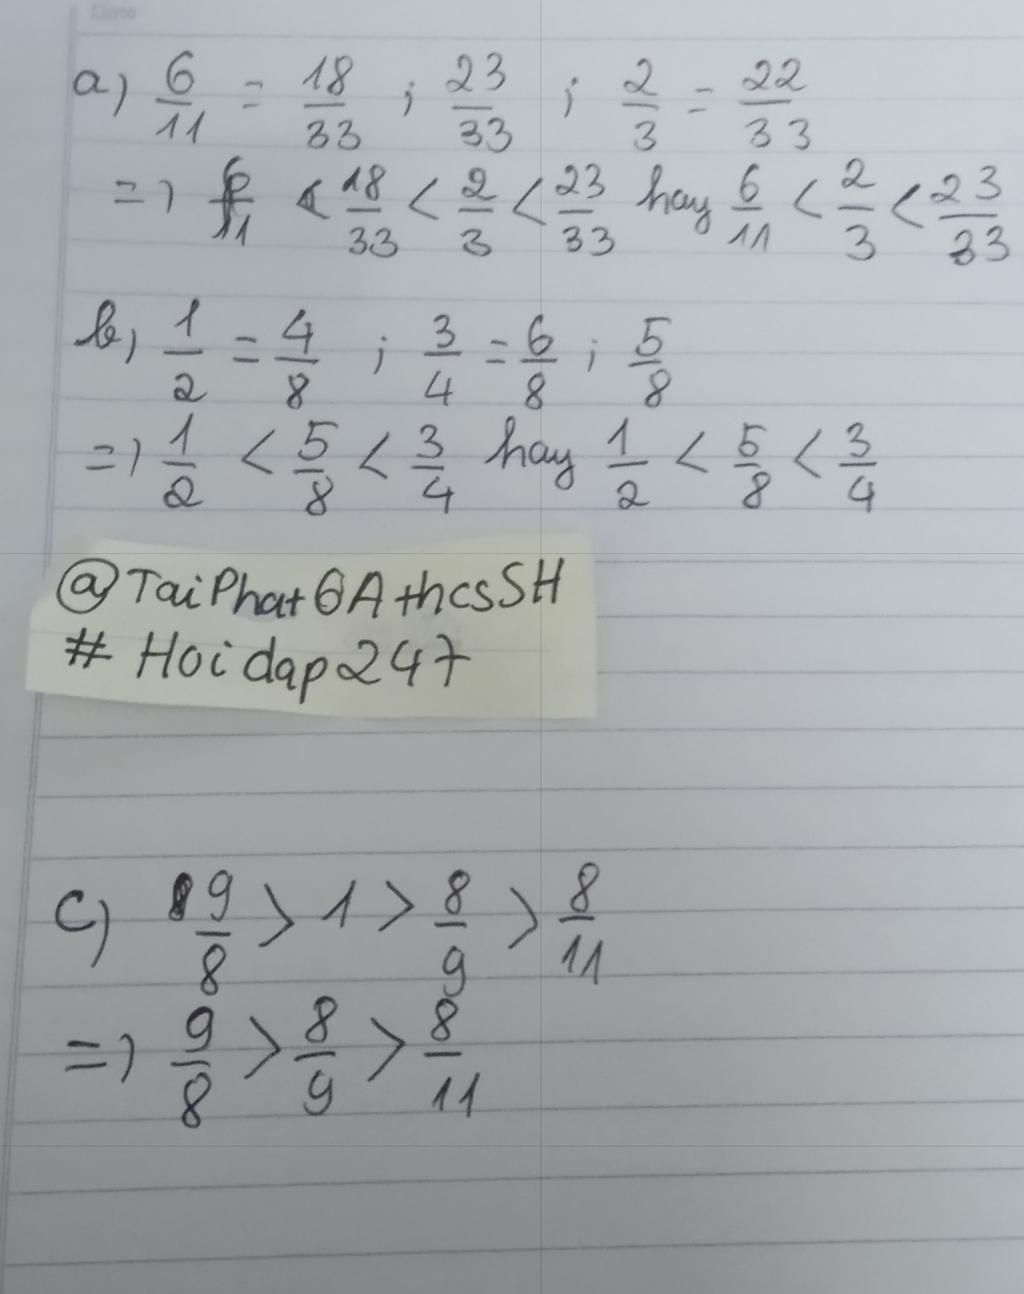 Date
a) 6/11 = 18/33 ; 23/33 ; 2/3 = 22/33
=> < 18/33 < 2/3 < 23/33 hay 6/11 < 2/3 < 23/33
b) 1/2 = 4/8 ; 3/4 = 6/8 ; 5/8
=> 1/2 < 5/8 < 3/4 hay 1/2 < 5/8 < 3/4
@TaiPhat6AthcsSH
# Hoidap247
c) 9/8 > 1 > 8/9 > 8/11
=> 9/8 > 8/9 > 8/11